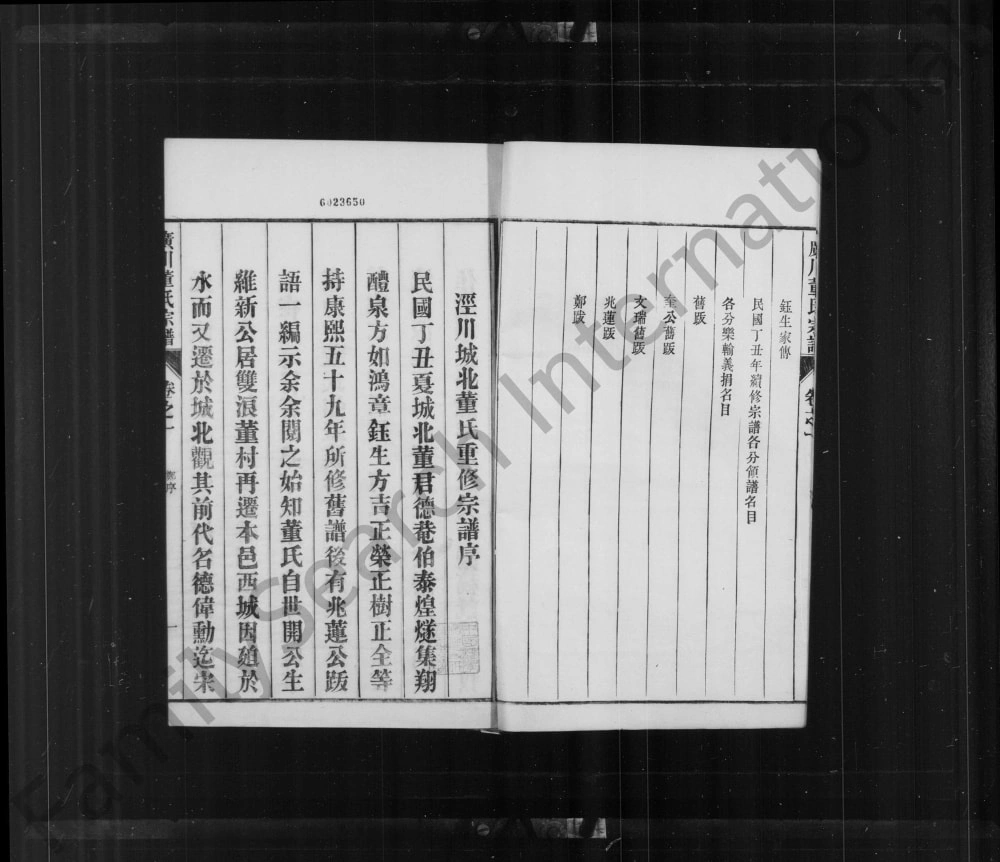 鈺生家傳
民國丁丑年續修宗譜各分領譜名目
各分樂輸義捐名目
舊跋
奎公舊跋
文瑞舊跋
兆蓮跋
鄭跋
6023650
涇川城北董氏重修宗譜序
民國丁丑夏城北董君德菴伯泰煌燧集翔
醴泉方如鴻章鈺生方吉正榮正樹正全等
持康熙五十九年所修舊譜後有兆蓮公跋
語一編示余余閱之始知董氏自世開公生
維新公居雙浪董村再遷本邑西城因殖於
水而又遷於城北觀其前代名德偉勳迄宋
廣川董氏宗譜
卷之一
鄭序
一
FamilySearch International